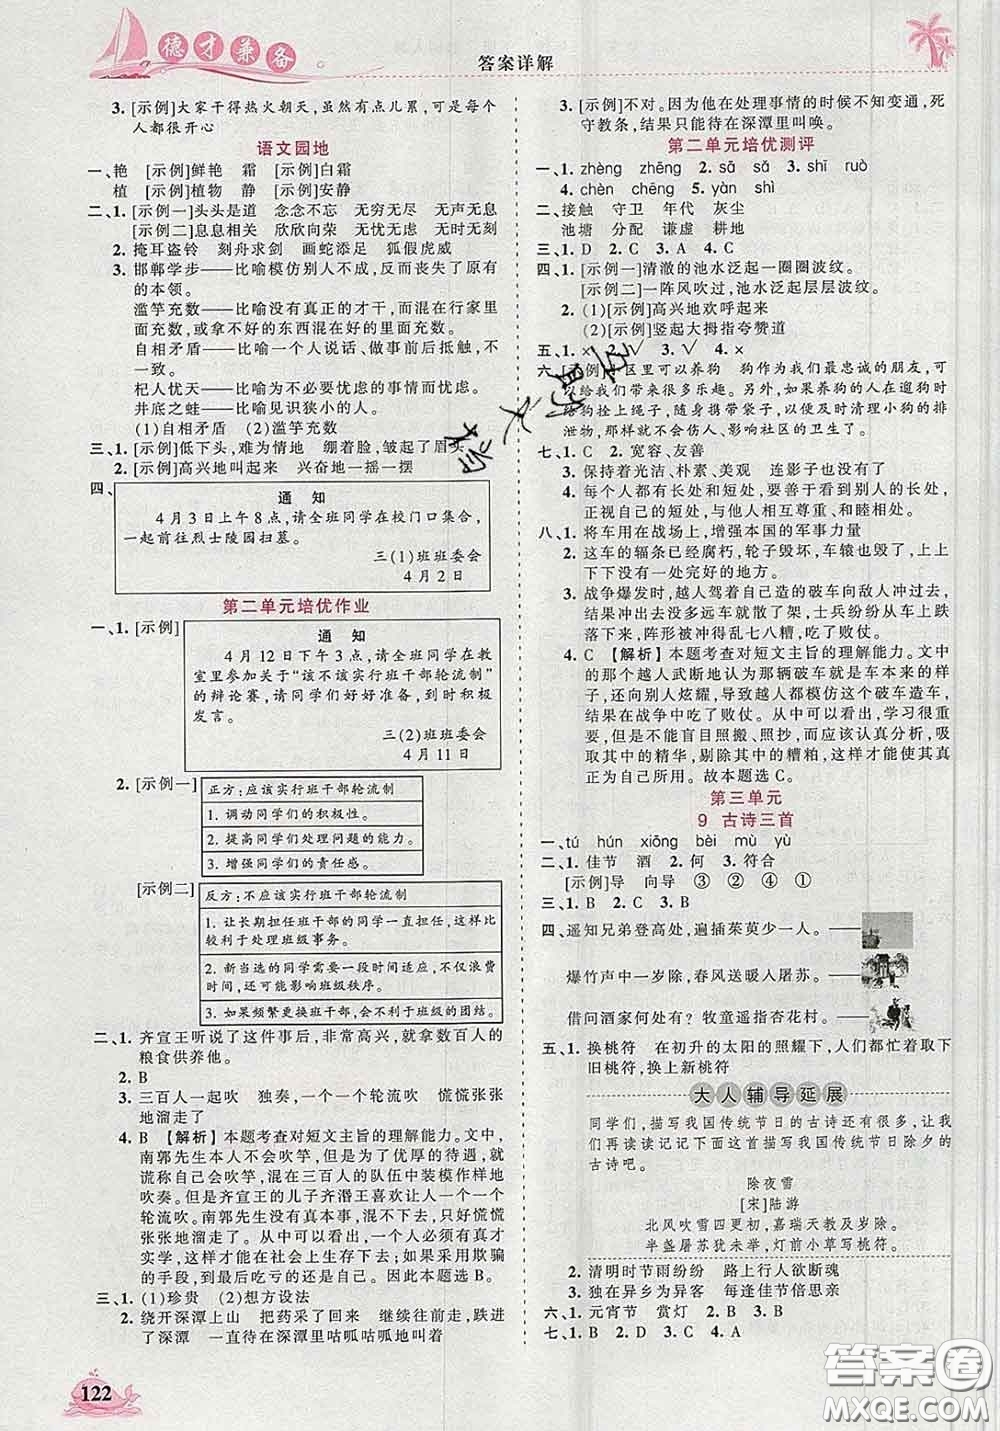 德才兼备
答案详解
3. [示例]大家干得热火朝天，虽然有点儿累，可是每个
人都很开心
语文园地
一、艳　[示例]鲜艳　霜　[示例]白霜
植　[示例]植物　静　[示例]安静
二、1. [示例一]头头是道　念念不忘　无穷无尽　无声无息
[示例二]息息相关　欣欣向荣　无忧无虑　无时无刻
2. 掩耳盗铃　刻舟求剑　画蛇添足　狐假虎威
3. 邯郸学步——比喻模仿别人不成，反而丧失了原有
的本领。
滥竽充数——比喻没有真正的才干，而混在行家里
面充数，或拿不好的东西混在好的里面充数。
自相矛盾——比喻一个人说话、做事前后抵触，不
一致。
杞人忧天——比喻为不必要忧虑的事情而忧虑。
井底之蛙——比喻见识狭小的人。
(1)自相矛盾　(2)滥竽充数
三、1. [示例]低下头，难为情地　绷着脸，皱起了眉头
2. [示例]高兴地叫起来　兴奋地一摇一摆
四、
通　知
4月3日上午8点，请全班同学在校门口集合，
一起前往烈士陵园扫墓。
三(1)班班委会
4月2日
第二单元培优作业
一、1. [示例]
通　知
4月12日下午3点，请全班同学在教
室里参加关于“该不该实行班干部轮流制”
的辩论赛，请同学们好好准备，到时积极
发言。
三(2)班班委会
4月11日
2. [示例一]
正方：应该实行班干部轮流制
1. 调动同学们的积极性。
2. 提高同学们处理问题的能力。
3. 增强同学们的责任感。
[示例二]
反方：不应该实行班干部轮流制
1. 让长期担任班干部的同学一直担任，这样
比较利于处理班级事务。
2. 新当选的同学需要一段时间适应，不仅浪费
时间，还可能影响班级秩序。
3. 如果频繁更换班干部，不利于班级的团结。
二、1. 齐宣王听说了这件事后，非常高兴，就拿数百人的
粮食供养他。
2. B
3. 三百人一起吹　独奏，一个一个轮流吹　慌慌张张
地溜走了
4. B　【解析】本题考查对短文主旨的理解能力。文中，
南郭先生本人不会吹竽，但是为了优厚的待遇，就
谎称自己会吹竽，在三百人的队伍中装模作样地
吹奏。但是齐宣王的儿子齐湣王喜欢让人一个一个
轮流吹。南郭先生没有真本事，只好慌慌
张张地溜走了。从中可以看出，一个人必须有真才
实学，这样才能在社会上生存下去；如果采用欺骗
的手段，到最后吃亏的还是自己。因此本题选B。
三、1. (1)珍贵　(2)想方设法
2. 绕开深潭上山　把药采了回来　继续往前走，跌进
了深潭　一直待在深潭里呱呱呱呱地叫着
122
3. [示例]不对。因为他在处理事情的时候不知变通，死
守教条，结果只能待在深潭里叫唤。
第二单元培优测评
一、1. zhèng　zhēng　2. sā　sǎ　3. shī　ruò
4. chèn　chēng　5. yàn　shì
二、接触　守卫　年代　灰尘
池塘　分配　谦虚　耕地
三、1. D　2. C　3. A　4. C
四、1. [示例一]清澈的池水泛起一圈圈波纹。
[示例二]一阵风吹过，池水泛起层层波纹。
2. (1)[示例]高兴地欢呼起来
(2)[示例]竖起大拇指夸赞道
五、1. ×　2. √　3. √　4. ×
六、[示例]小区里可以养狗　狗作为我们最忠诚的朋友，可
以给我们带来很多乐趣。另外，如果养狗的人在遛狗时
给狗拴上绳子，随身携带袋子，及时清理小狗的排
泄物，那样就不会伤人、影响社区的卫生了。
七、1. C　2. 宽容、友善
3. 保持着光洁、朴素、美观　连影子也没有一个
4. 每个人都有长处和短处，要善于看到别人的长处，
正视自己的短处，与他人相互尊重、和睦相处。
八、1. 将车用在战场上，增强本国的军事力量
2. 这车的辐条已经腐朽，轮子毁坏，车辕也毁了，上上
下下没有一处完好的地方。
3. 战争爆发时，越人驾着自己造的破车向敌人冲过去，
没多远车子就散了架，士兵纷纷从车上跌
落下来，阵形被冲得乱七八糟，吃了败仗。
4. C　【解析】本题考查对短文主旨的理解能力。文中
的越人武断地认为那辆破车就是车本来的样
子，还向别人炫耀，导致越人都模仿这个破车造车，
结果在战争中吃了败仗。从中可以看出，学习很重
要，但是不能盲目照搬、照抄，而应该认真分析，吸
取其中的精华，剔除其中的糟粕，这样才能使其成
为自己所用。故本题选C。
第三单元
9　古诗三首
一、tú　hún　xiōng　bèi　mù　yù
二、1. 佳节　酒　2. 何　3. 符合
[示例]导　向导　③　②　④　①
三、1. B　2. C　3. B
四、遥知兄弟登高处，遍插茱萸少一人。——
爆竹声中一岁除，春风送暖入屠苏。——
借问酒家何处有？牧童遥指杏花村。——
五、1. 换桃符　在初升的太阳的照耀下，人们都忙着取下
旧桃符，换上新桃符
大人辅导延展
同学们，描写我国传统节日的古诗还有很多，让我
们再读读记记下面这首描写我国传统节日除夕的
古诗吧。
除夜雪
[宋]陆游
北风吹雪四更初，嘉瑞天教及岁除。
半盏屠苏犹未举，灯前小草写桃符。
2. 清明时节雨纷纷　路上行人欲断魂
3. 独在异乡为异客　每逢佳节倍思亲
六、1. 元宵节　赏灯　2. B　3. C
七、1. B　2. C　3. D　4. D
答案圈
MXQE.COM